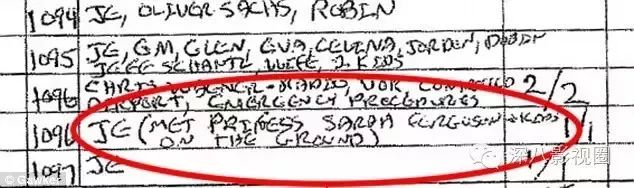 1094 JE, OLIVER SACHS, ROBIN
1095 JE, GM, GLEN, EVA, CELINA, JORDAN, DUBIN
JEFF SCHANTZ, WIFE, 2 KIDS
1096
AIRPORT, EMERGENCY PROCEDURES 2/2
1096 JE (MET PRINCESS SARAH FERGUSON + KIDS
ON THE GROUND) 1/1
1097 JE
深八影视圈
© Gawker